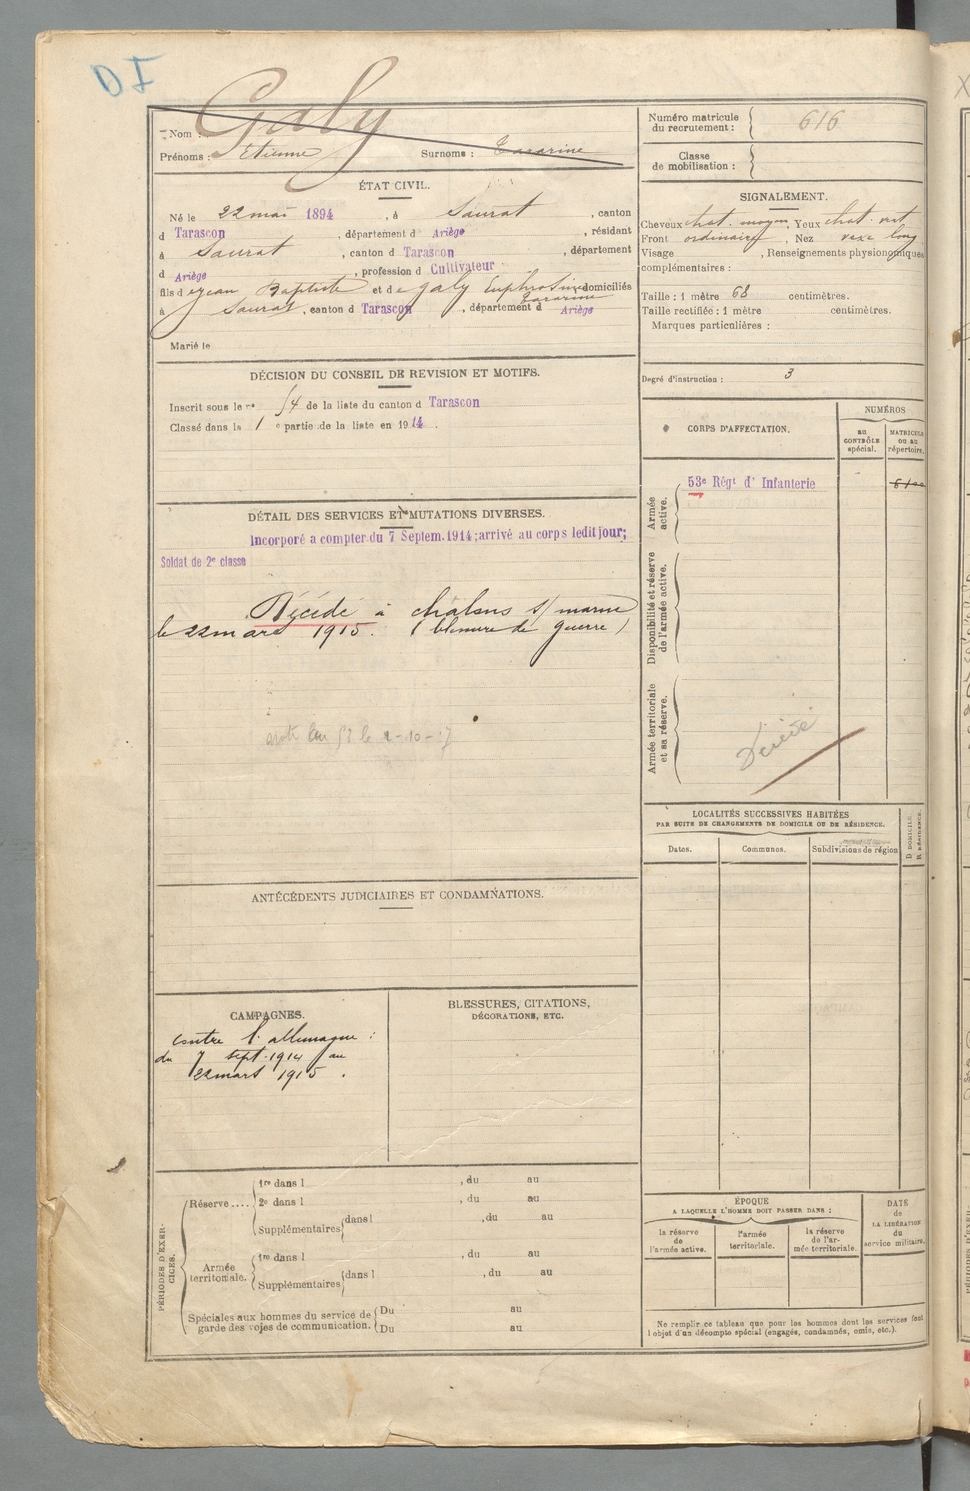 DI
Galy
Nom :
Prénoms : Etienne Surnoms : Tararine
ÉTAT CIVIL.
Né le 22 mai 1894, à Saurat, canton
d Tarascon, département d Ariège, résidant
à Saurat, canton d Tarascon, département
d Ariège, profession d Cultivateur
fils d e Jean Baptiste et de Galy Euphrosine domiciliés
Tararine
à Saurat, canton d Tarascon, département d Ariège
Marié le
DÉCISION DU CONSEIL DE REVISION ET MOTIFS.
Inscrit sous le n° 54 de la liste du canton d Tarascon
Classé dans la 1 e partie de la liste en 1914.
DÉTAIL DES SERVICES ET MUTATIONS DIVERSES.
Incorporé a compter du 7 Septem. 1914; arrivé au corps ledit jour;
Soldat de 2e classe
Décédé à chalons s/ marne
le 22 mars 1915. (blessure de guerre)
ANTÉCÉDENTS JUDICIAIRES ET CONDAMNATIONS.
CAMPAGNES.
contre l'allemagne :
du 7 sept. 1914 au
22 mars 1915.
BLESSURES, CITATIONS,
DÉCORATIONS, ETC.
PÉRIODES D'EXER-
CICES.
Réserve ....
1re dans l , du au
2e dans l , du au
Supplémentaires dans l , du au
Armée
territoriale.
1re dans l , du au
Supplémentaires dans l , du au
Spéciales aux hommes du service de
garde des voies de communication.
Du au
Du au
Numéro matricule
du recrutement : 616
Classe
de mobilisation :
SIGNALEMENT.
Cheveux chat. moyen, Yeux chat. vert
Front ordinaire, Nez vexe long
Visage , Renseignements physionomiques
complémentaires :
Taille : 1 mètre 68 centimètres.
Taille rectifiée : 1 mètre centimètres.
Marques particulières :
Degré d'instruction : 3
CORPS D'AFFECTATION.
NUMÉROS
au
CONTRÔLE
spécial.
MATRICULE
ou au
répertoire.
Armée
active.
53e Régt d' Infanterie
Disponibilité et réserve
de l'armée active.
Armée territoriale
et sa réserve.
Décédé
LOCALITÉS SUCCESSIVES HABITÉES
PAR SUITE DE CHANGEMENTS DE DOMICILE OU DE RÉSIDENCE.
Dates.
Communes.
Subdivisions de région
D DOMICILE.
R RÉSIDENCE.
ÉPOQUE
A LAQUELLE L'HOMME DOIT PASSER DANS :
la réserve
de
l'armée active.
l'armée
territoriale.
la réserve
de l'ar-
mée territoriale.
DATE
de
LA LIBÉRATION
du
service militaire.
Ne remplir ce tableau que pour les hommes dont les services font
l'objet d'un décompte spécial (engagés, condamnés, omis, etc.).